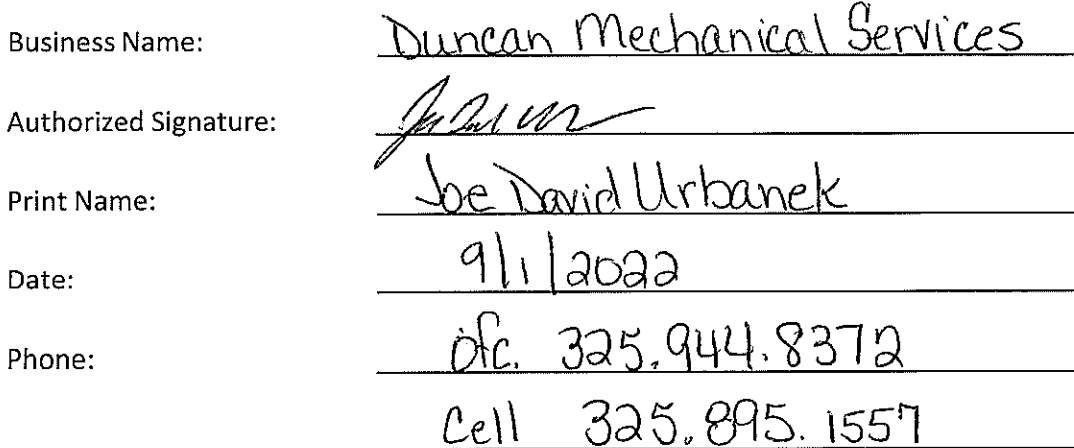 Business Name: Duncan Mechanical Services
Authorized Signature:
Print Name: Joe David Urbanek
Date: 9/1/2022
Phone: Ofc. 325.944.8372
Cell 325.895.1557